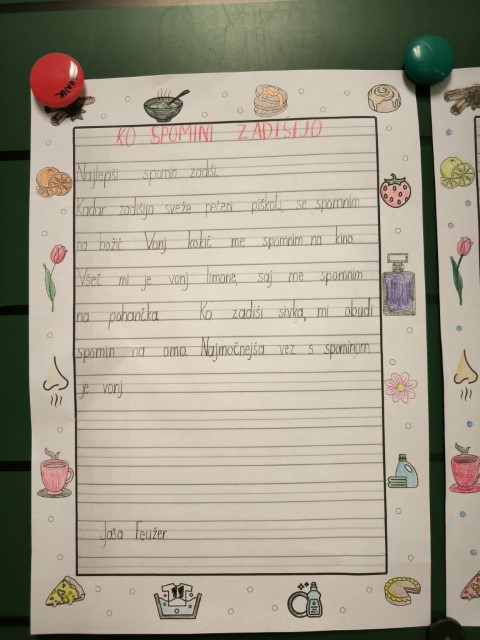 KO SPOMINI ZADIŠIJO
Najlepši spomin zadiši.
Kadar zadišijo sveže pečeni piškoti, se spomnim
na božič. Vonj kokic me spomnim na kino.
Všeč mi je vonj limone, saj me spomnim
na pohančka. Ko zadiši sivka, mi obudi
spomin na omo. Najmočnejša vez s spominom
je vonj.
Jaša Feužer